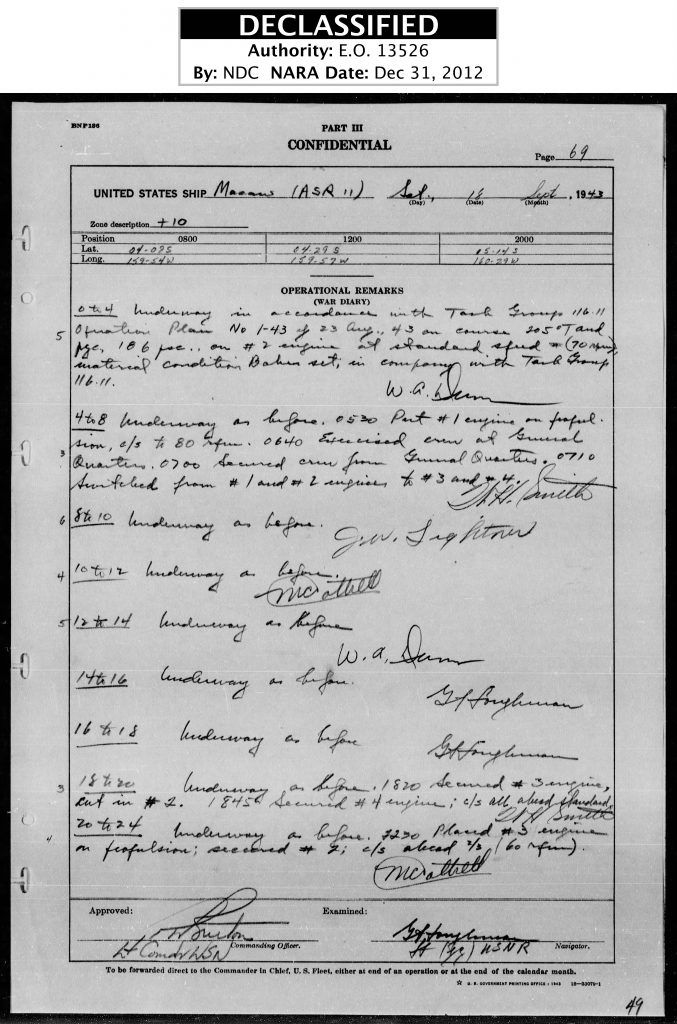 DECLASSIFIED
Authority: E.O. 13526
By: NDC NARA Date: Dec 31, 2012
BNP 186
PART III
CONFIDENTIAL
Page 69
UNITED STATES SHIP Macaw (ASR 11) Sat., 18 Sept, 1943
(Day) (Date) (Month)
Zone description +10
Position 0800 1200 2000
Lat. 04-09S 04-29S 05-14S
Long. 159-54W 159-57W 160-29W
OPERATIONAL REMARKS
(WAR DIARY)
0 to 4 Underway in accordance with Task Group 116.11
5 Operation Plan No 1-43 of 23 Aug., 43 on course 205°T and
pgc, 186 psc., on #2 engine at standard speed (70 rpm),
material condition Baker set, in company with Task Group
116.11.
W. A. Dunn
4 to 8 Underway as before. 0530 Put #1 engine on propul-
sion, c/s to 80 rpm. 0640 Exercised crew at General
3 Quarters. 0700 Secured crew from General Quarters. 0710
Switched from #1 and #2 engines to #3 and #4.
H. Smith
6 8 to 10 Underway as before.
J.W.
4 10 to 12 Underway as before.
5 12 to 14 Underway as before
W. A. Dunn
14 to 16 Underway as before.
16 to 18 Underway as before
3 18 to 20 Underway as before. 1820 Secured #3 engine,
cut in #2. 1845 Secured #4 engine; c/s all ahead standard.
H Smith
4 20 to 24 Underway as before. 2230 Placed #3 engine
on propulsion; secured #2; c/s ahead 2/3 (60 rpm).
Approved: Examined:
Lt Comdr USN Commanding Officer. Lt (jg) USNR Navigator.
To be forwarded direct to the Commander in Chief, U.S. Fleet, either at end of an operation or at the end of the calendar month.
☆ U. S. GOVERNMENT PRINTING OFFICE : 1943 16—33079-1
49